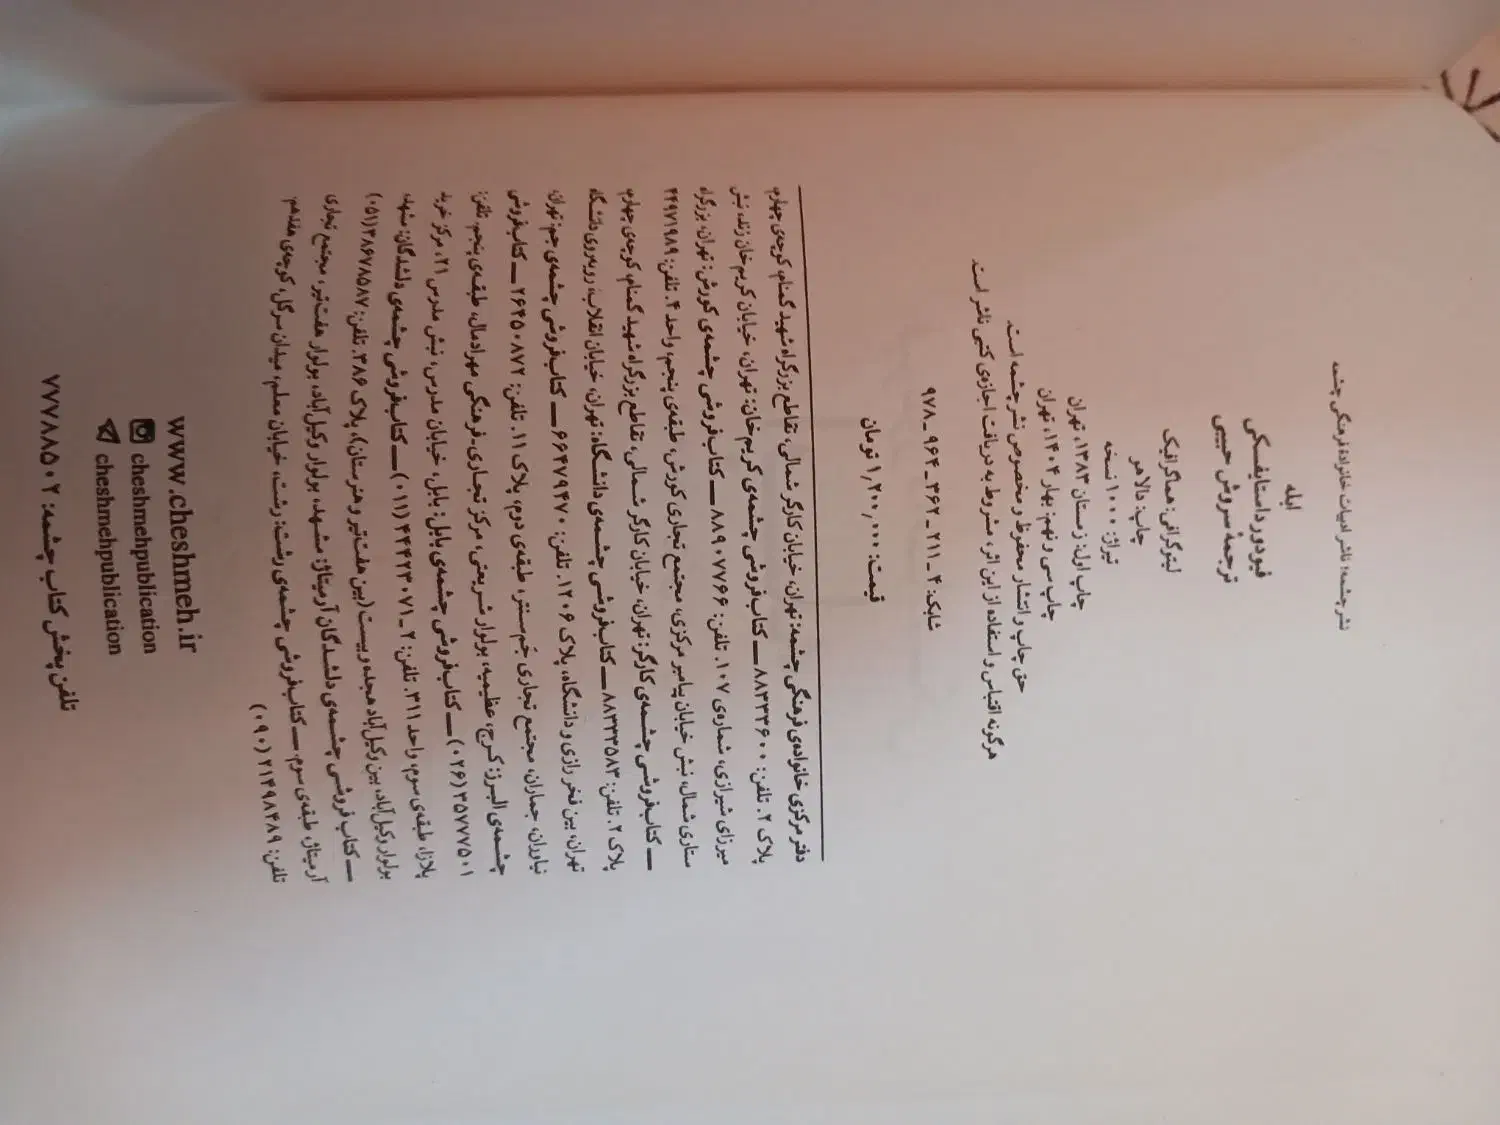 نشرچشمه: ناشر ادبیات خانواده‌ فرهنگی چشمه
ابله
فیودور داستایفسکی
ترجمهٔ سروش حبیبی
لیتوگرافی: هماگرافیک
چاپ: دالاهو
تیراژ: ۱۰۰۰ نسخه
چاپ اول: زمستان ۱۳۸۳، تهران
چاپ سی و نهم: بهار ۱۴۰۴، تهران
حق چاپ و انتشار محفوظ و مخصوص نشرچشمه است.
هرگونه اقتباس و استفاده از این اثر، مشروط به دریافت اجازه‌ی کتبی ناشر است.
شابک: ۴ ـ ۲۱۱ ـ ۳۶۲ ـ ۹۶۴ ـ ۹۷۸
قیمت: ۱٫۲۰۰٫۰۰۰ تومان
دفتر مرکزی خانواده‌ی فرهنگی چشمه: تهران، خیابان کارگر شمالی، تقاطع بزرگراه شهید گمنام، کوچه‌ی چهارم،
پلاک ۲. تلفن: ۸۸۳۳۳۶۰۰ ـ کتاب‌فروشی چشمه‌ی کریم‌خان: تهران، خیابان کریم‌خان زند، نبش
میرزای شیرازی، شماره‌ی ۱۰۷. تلفن: ۸۸۹۰۷۷۶۶ ـ کتاب‌فروشی چشمه‌ی کورش: تهران، بزرگراه
ستاری شمال، نبش خیابان پیامبر مرکزی، مجتمع تجاری کورش، طبقه‌ی پنجم، واحد ۴. تلفن: ۴۴۹۷۱۹۸۹
ـ کتاب‌فروشی چشمه‌ی کارگر: تهران، خیابان کارگر شمالی، تقاطع بزرگراه شهید گمنام، کوچه‌ی چهارم،
پلاک ۲. تلفن: ۸۸۳۳۳۵۸۳ ـ کتاب‌فروشی چشمه‌ی دانشگاه: تهران، خیابان انقلاب، روبه‌روی دانشگاه
تهران، بین فخر رازی و دانشگاه، پلاک ۱۲۰۶. تلفن: ۶۶۴۷۹۴۷۰ ـ کتاب‌فروشی چشمه‌ی جم: تهران،
نیاوران، جماران، مجتمع تجاری جم‌سنتر، طبقه‌ی دوم، پلاک ۱۱. تلفن: ۲۶۴۵۰۸۷۲ ـ کتاب‌فروشی
چشمه‌ی البرز: کرج، عظیمیه، بولوار شریعتی، مرکز تجاری ـ فرهنگی مهرادمال، طبقه‌ی پنجم. تلفن:
۳۵۷۷۷۵۰۱(۰۲۶) ـ کتاب‌فروشی چشمه‌ی بابل: بابل، خیابان مدرس، نبش مدرس ۲۱، مرکز خرید
پلازا، طبقه‌ی سوم، واحد ۳۱۱. تلفن: ۲ ـ ۴۴۴۲۳۰۷۱(۰۱۱) ـ کتاب‌فروشی چشمه‌ی دلشدگان: مشهد،
بولوار وکیل‌آباد، بین وکیل‌آباد هجده و بیست (بین هفت‌تیر و هنرستان)، پلاک ۳۸۶. تلفن: ۳۸۶۷۸۵۸۷(۰۵۱)
ـ کتاب فروشی چشمه‌ی دلشدگان آرمیتاژ: مشهد، بولوار وکیل‌آباد، بولوار هفت‌تیر، مجتمع تجاری
آرمیتاژ، طبقه‌ی سوم. ـ کتاب‌فروشی چشمه‌ی رشت: رشت، خیابان معلم، میدان سرگل، کوچه‌ی هفدهم.
تلفن: ۲۱۴۹۸۴۸۹(۰۹۰)
www.cheshmeh.ir
cheshmehpublication
cheshmehpublication
تلفن پخش کتاب چشمه: ۷۷۷۸۸۵۰۲